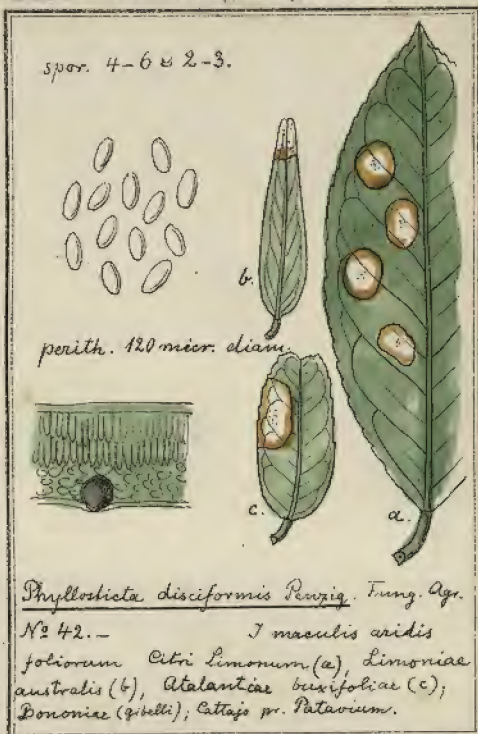 spor. 4-6 ≈ 2-3.
b.
perith. 120 micr. diam.
c.
a.
Phyllosticta disciformis Penzig. Fung. Agr.
Nº 42. - I maculis aridis
foliorum Citri Limonum (a), Limoniae
australis (b), Atalantiae buxifoliae (c);
Bononiae (gibelli); Cattajo pr. Patavium.